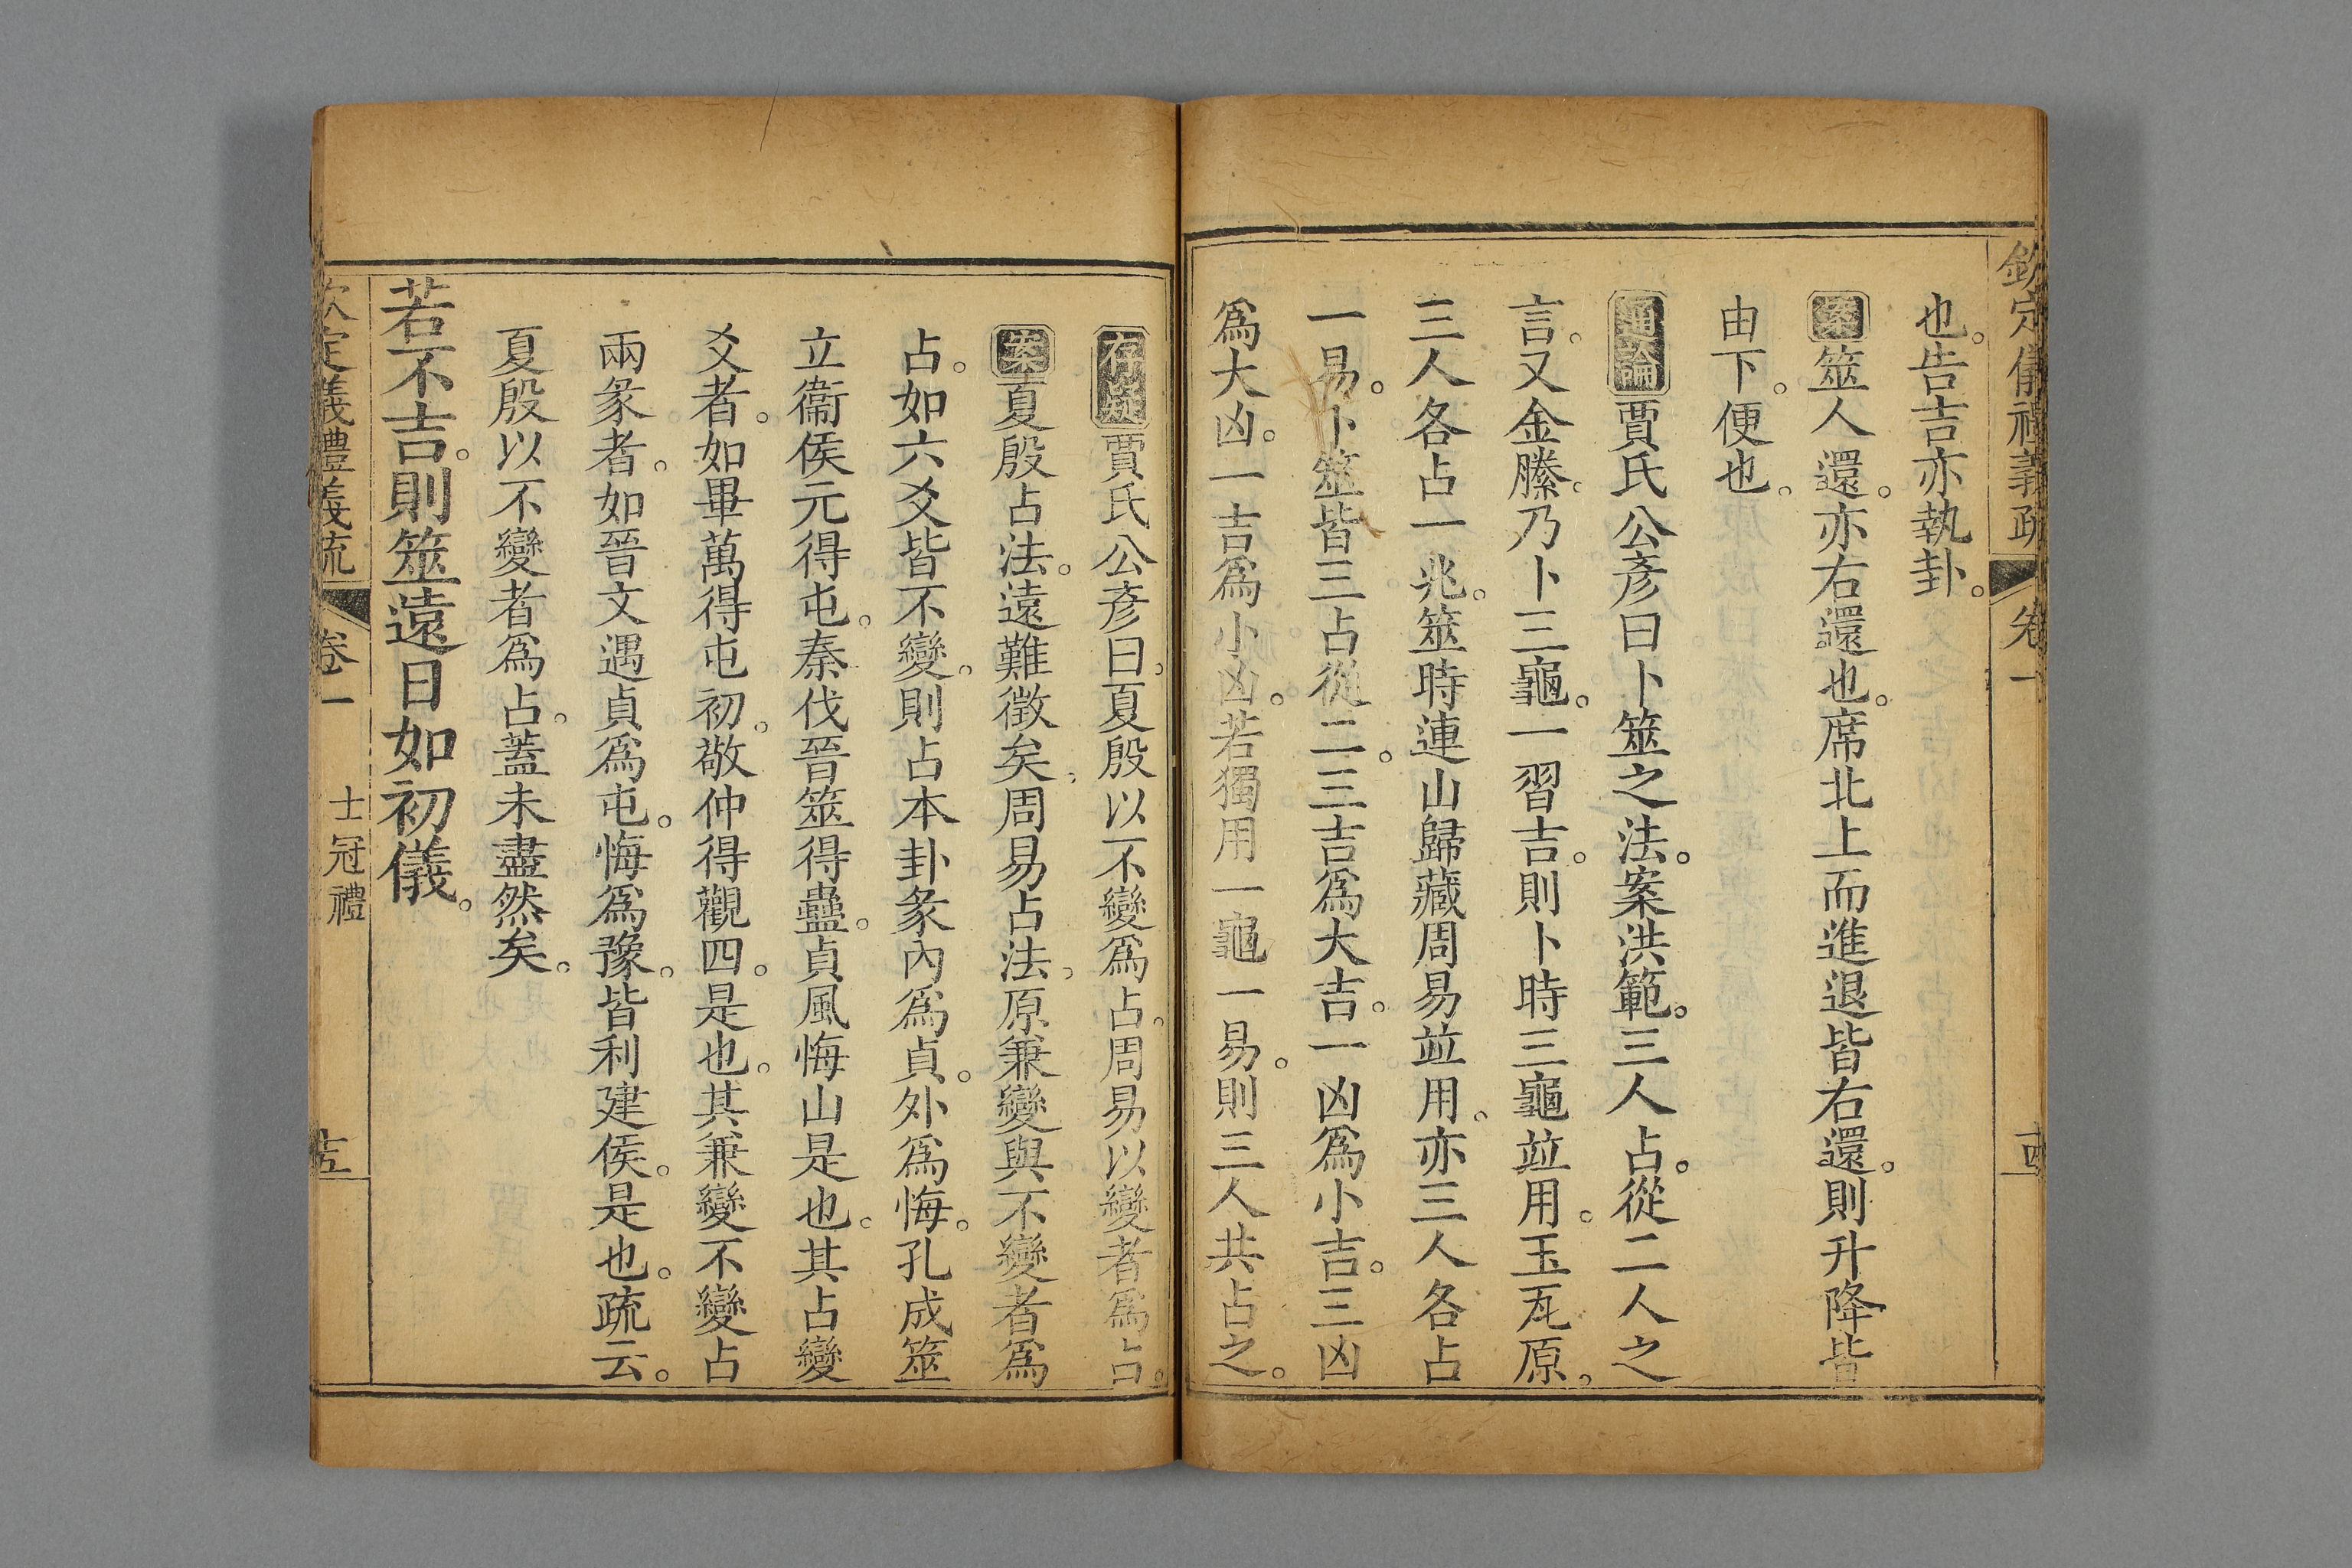 欽定儀禮義疏 卷一 十四
也。告吉亦執卦。
案筮人還。亦右還也。席北上而進退皆右還。則升降皆
由下。便也。
通論賈氏公彥曰卜筮之法。案洪範。三人占。從二人之
言。又金縢。乃卜三龜。一習吉。則卜時三龜並用。玉瓦原。
三人各占一兆。筮時連山歸藏周易並用。亦三人各占
一易。卜筮皆三占從二。三吉爲大吉。一凶爲小吉。三凶
爲大凶。一吉爲小凶。若獨用一龜一易。則三人共占之。
存疑賈氏公彥曰。夏殷以不變爲占。周易以變者爲占。
案夏殷占法。遠難徵矣。周易占法。原兼變與不變者爲
占。如六爻皆不變。則占本卦彖內爲貞。外爲悔。孔成筮
立衞侯元得屯。秦伐晉筮得蠱。貞風悔山是也。其占變
爻者。如畢萬得屯初。敬仲得觀四。是也。其兼變不變占
兩彖者。如晉文遇貞爲屯。悔爲豫。皆利建侯。是也。疏云。
夏殷以不變者爲占。蓋未盡然矣。
若不吉。則筮遠日如初儀。
欽定儀禮義疏 卷一 士冠禮 十五